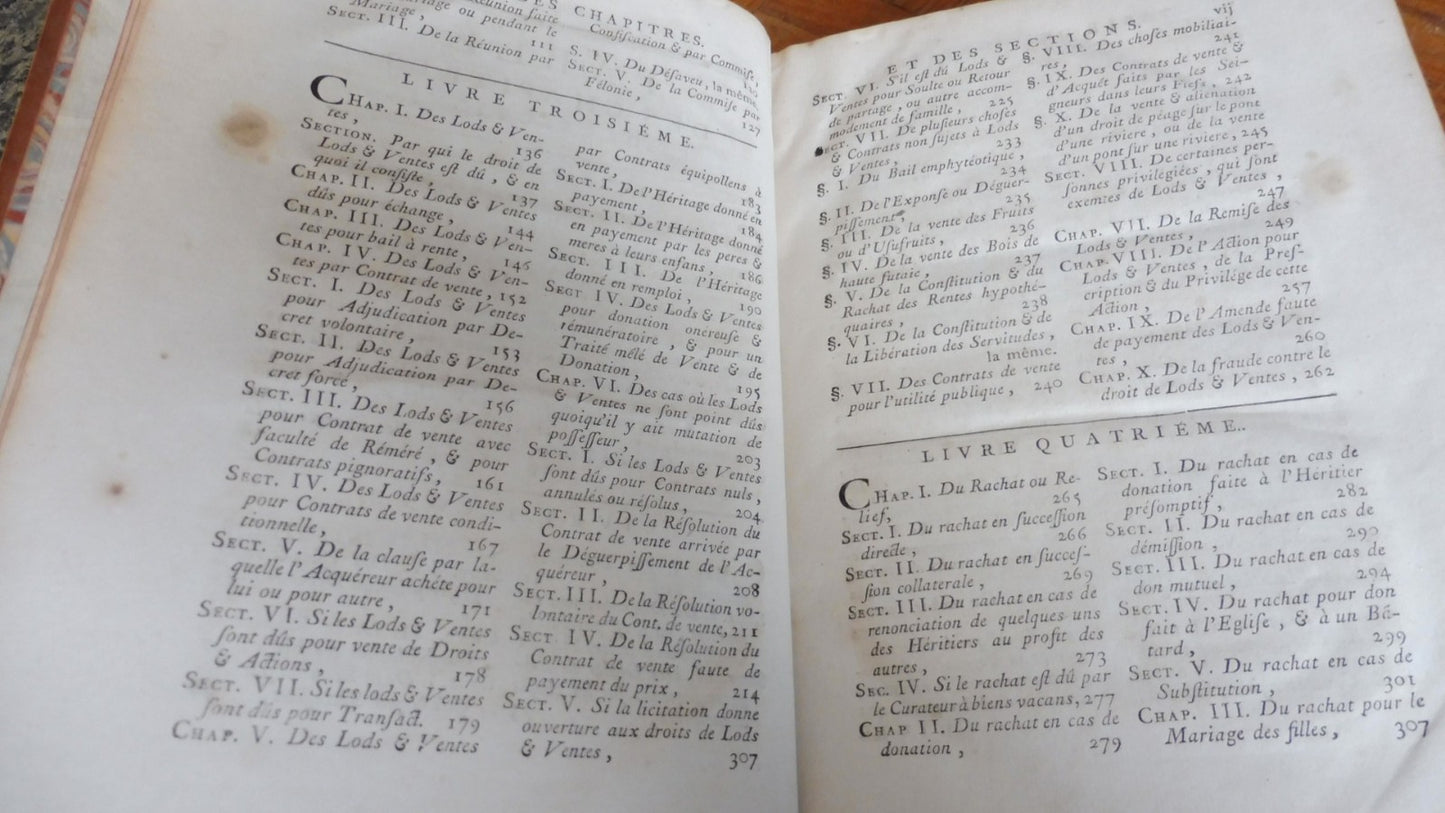 DES CHAPITRES.
Réunion faite
Mariage ou pendant le
Mariage, 111
SECT. III. De la Réunion par
Confiscation & par Commise,
S. IV. Du Désaveu, la même.
SECT. V. De la Commise par
Félonie, 127
LIVRE TROISIÉME.
CHAP. I. Des Lods & Ven-
tes, 136
SECTION. Par qui le droit de
Lods & Ventes est dû, & en
quoi il consiste, 137
CHAP. II. Des Lods & Ventes
dûs pour échange, 144
CHAP. III. Des Lods & Ven-
tes pour bail à rente, 146
CHAP. IV. Des Lods & Ven-
tes par Contrat de vente, 152
SECT. I. Des Lods & Ventes
pour Adjudication par De-
cret volontaire, 153
SECT. II. Des Lods & Ventes
pour Adjudication par De-
cret forcé, 156
SECT. III. Des Lods & Ventes
pour Contrat de vente avec
faculté de Réméré, & pour
Contrats pignoratifs, 161
SECT. IV. Des Lods & Ventes
pour Contrats de vente condi-
tionnelle, 167
SECT. V. De la clause par la-
quelle l'Acquéreur achéte pour
lui ou pour autre, 171
SECT. VI. Si les Lods & Ventes
sont dûs pour vente de Droits
& Actions, 178
SECT. VII. Si les lods & Ventes
sont dûs pour Transact. 179
CHAP. V. Des Lods & Ventes
par Contrats équipollens à
vente, 183
SECT. I. De l'Héritage donné en
payement, 184
SECT. II. De l'Héritage donné
en payement par les peres &
meres à leurs enfans, 186
SECT. III. De l'Héritage
donné en remploi, 190
SECT IV. Des Lods & Ventes
pour donation onéreuse &
rémunératoire, & pour un
Traité mêlé de Vente & de
Donation, 195
CHAP. VI. Des cas où les Lods
& Ventes ne sont point dûs
quoiqu'il y ait mutation de
possesseur, 203
SECT. I. Si les Lods & Ventes
sont dûs pour Contrats nuls,
annulés ou résolus, 204
SECT. II. De la Résolution du
Contrat de vente arrivée par
le Déguerpissement de l'Ac-
quéreur, 208
SECT. III. De la Résolution vo-
lontaire du Cont. de vente, 211
SECT. IV. De la Résolution du
Contrat de vente faute de
payement du prix, 214
SECT. V. Si la licitation donne
ouverture aux droits de Lods
& Ventes, 307
ET DES SECTIONS. vij
SECT. VI. S'il est dû Lods &
Ventes pour Soulte ou Retour
de partage, ou autre accom-
modement de famille, 225
SECT. VII. De plusieurs choses
& Contrats non sujets à Lods
& Ventes, 233
§. I. Du Bail emphytéotique,
234
§. II. De l'Exponse ou Déguer-
pissement, 235
§. III. De la vente des Fruits
ou d'Usufruits, 236
§. IV. De la vente des Bois de
haute futaie, 237
§. V. De la Constitution & du
Rachat des Rentes hypothé-
quaires, 238
§. VI. De la Constitution & de
la Libération des Servitudes,
la même.
§. VII. Des Contrats de vente
pour l'utilité publique, 240
§. VIII. Des choses mobiliai-
res, 241
§. IX. Des Contrats de vente &
d'Acquêt faits par les Sei-
gneurs dans leurs Fiefs, 242
§. X. De la vente & alienation
d'un droit de péage sur le pont
d'une riviere, ou de la vente
d'un pont sur une riviere, 245
SECT. VIII. De certaines per-
sonnes privilegiées, qui sont
exemtes de Lods & Ventes,
247
CHAP. VII. De la Remise des
Lods & Ventes, 249
CHAP. VIII. De l'Action pour
Lods & Ventes, de la Pres-
cription & du Privilége de cette
Action, 257
CHAP. IX. De l'Amende faute
de payement des Lods & Ven-
tes, 260
CHAP. X. De la fraude contre le
droit de Lods & Ventes, 262
LIVRE QUATRIÉME.
CHAP. I. Du Rachat ou Re-
lief, 265
SECT. I. Du rachat en succession
directe, 266
SECT. II. Du rachat en succes-
sion collaterale, 269
SECT. III. Du rachat en cas de
renonciation de quelques uns
des Héritiers au profit des
autres, 273
SEC. IV. Si le rachat est dû par
le Curateur à biens vacans, 277
CHAP II. Du rachat en cas de
donation, 279
SECT. I. Du rachat en cas de
donation faite à l'Héritier
présomptif, 282
SECT. II. Du rachat en cas de
démission, 290
SECT. III. Du rachat en cas de
don mutuel, 294
SECT. IV. Du rachat pour don
fait à l'Eglise, & à un Bâ-
tard, 299
SECT. V. Du rachat en cas de
Substitution, 301
CHAP. III. Du rachat pour le
Mariage des filles, 307